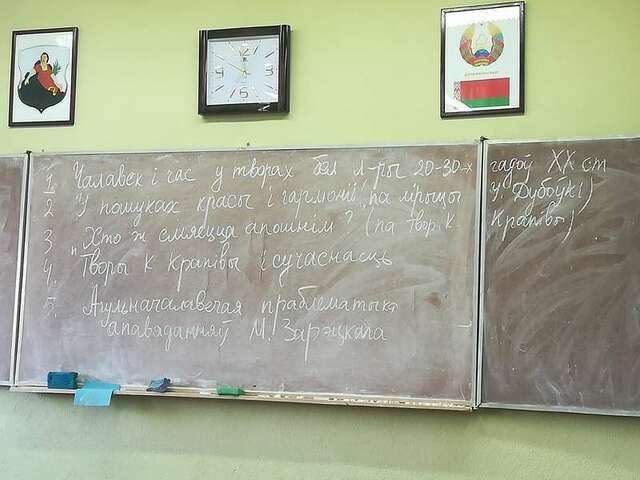 1. Чалавек і час у творах бел л-ры 20-30-х гадоў XX ст
2 У пошуках красы і гармоніі (па лірыцы У. Дубоўкі)
3 "Хто ж смяецца апошнім? (па твор. К. Крапівы)
4. Творы К Крапівы і сучаснасць
5. Агульначалавечая праблематыка
апавяданняў М. Зарэцкага